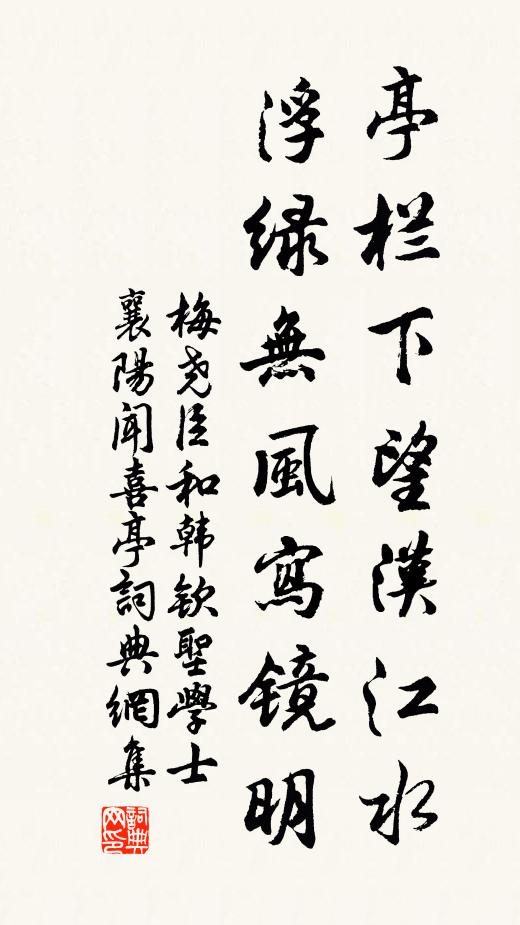 亭栏下望漢江水
浮绿無風寫镜明
梅尧臣和韩钦聖學士
襄陽闻喜亭詞典網集
詞典
网印